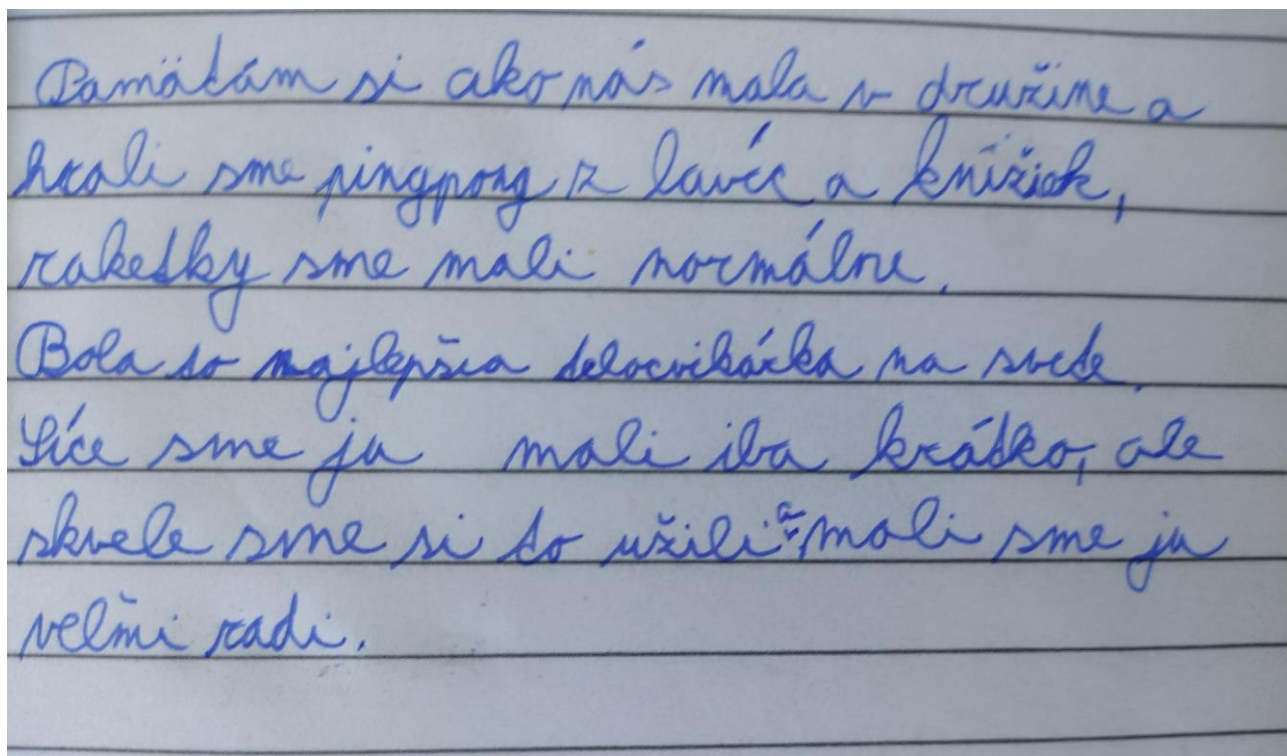 Pamätám si ako nás mala v družine a
hrali sme pingpong z lavíc a knížiek,
raketky sme mali normálne.
Bola to najlepšia telocvikárka na svete.
Síce sme ju mali iba krátko, ale
skvele sme si to užili a mali sme ju
veľmi radi.